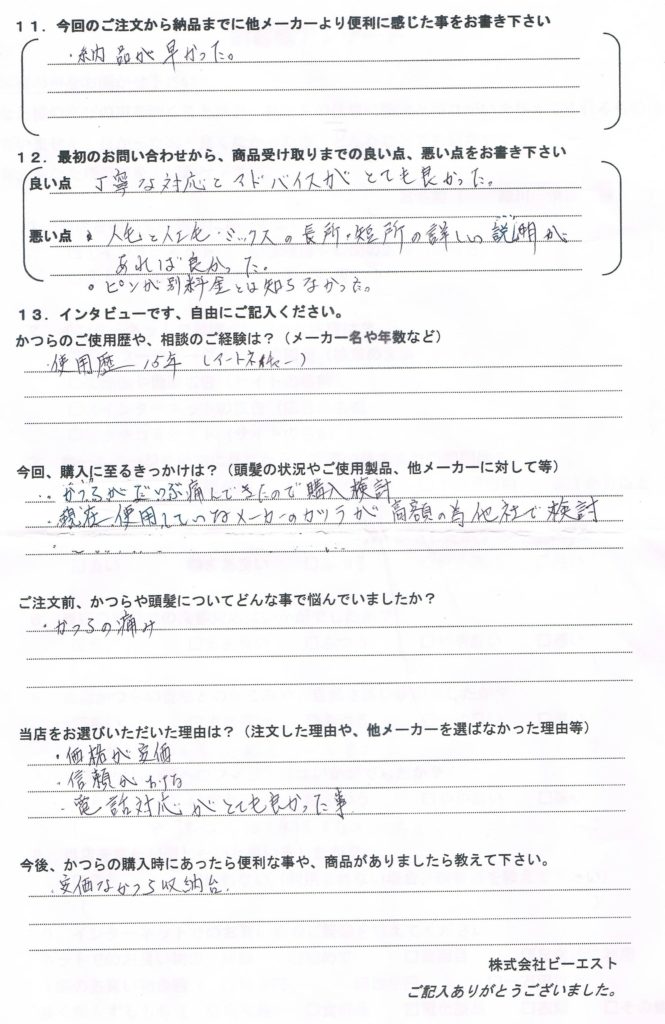 11．今回のご注文から納品までに他メーカーより便利に感じた事をお書き下さい
・納品が早かった。
12．最初のお問い合わせから、商品受け取りまでの良い点、悪い点をお書き下さい
良い点 丁寧な対応とアドバイスがとても良かった。
悪い点 人毛と人工毛・ミックスの長所・短所の詳しい説明が
あれば良かった。
○ピンが別料金とは知らなかった。
13．インタビューです、自由にご記入ください。
かつらのご使用歴や、相談のご経験は？（メーカー名や年数など）
・使用歴 15年
今回、購入に至るきっかけは？（頭髪の状況やご使用製品、他メーカーに対して等）
・かつらがだいぶ痛んできたので購入検討
・現在使用しているメーカーのカツラが高額の為他社で検討
ご注文前、かつらや頭髪についてどんな事で悩んでいましたか？
・かつらの痛み
当店をお選びいただいた理由は？（注文した理由や、他メーカーを選ばなかった理由等）
・価格が安価
・信頼が
・電話対応がとても良かった事
今後、かつらの購入時にあったら便利な事や、商品がありましたら教えて下さい。
・安価なかつら収納台.
株式会社ビーエスト
ご記入ありがとうございました。